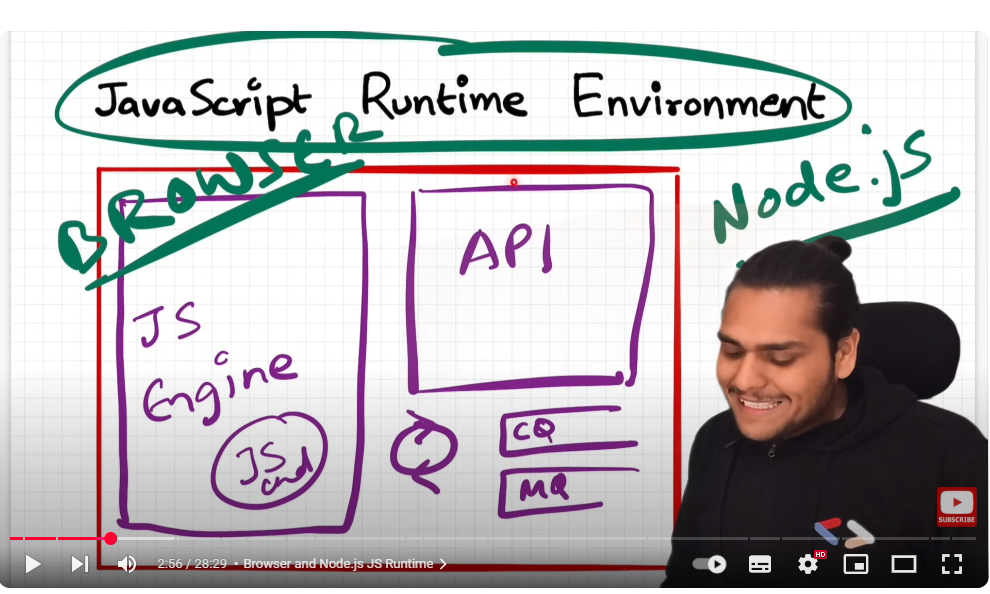 JavaScript Runtime Environment
BROWSER
Node.js
API
JS
Engine
JS
CQ
MQ
SUBSCRIBE
HD
2:56 / 28:29 • Browser and Node.js JS Runtime